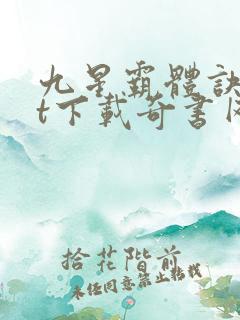 九星霸體訣
t下載奇書
拾花階前
未经同意禁止转载